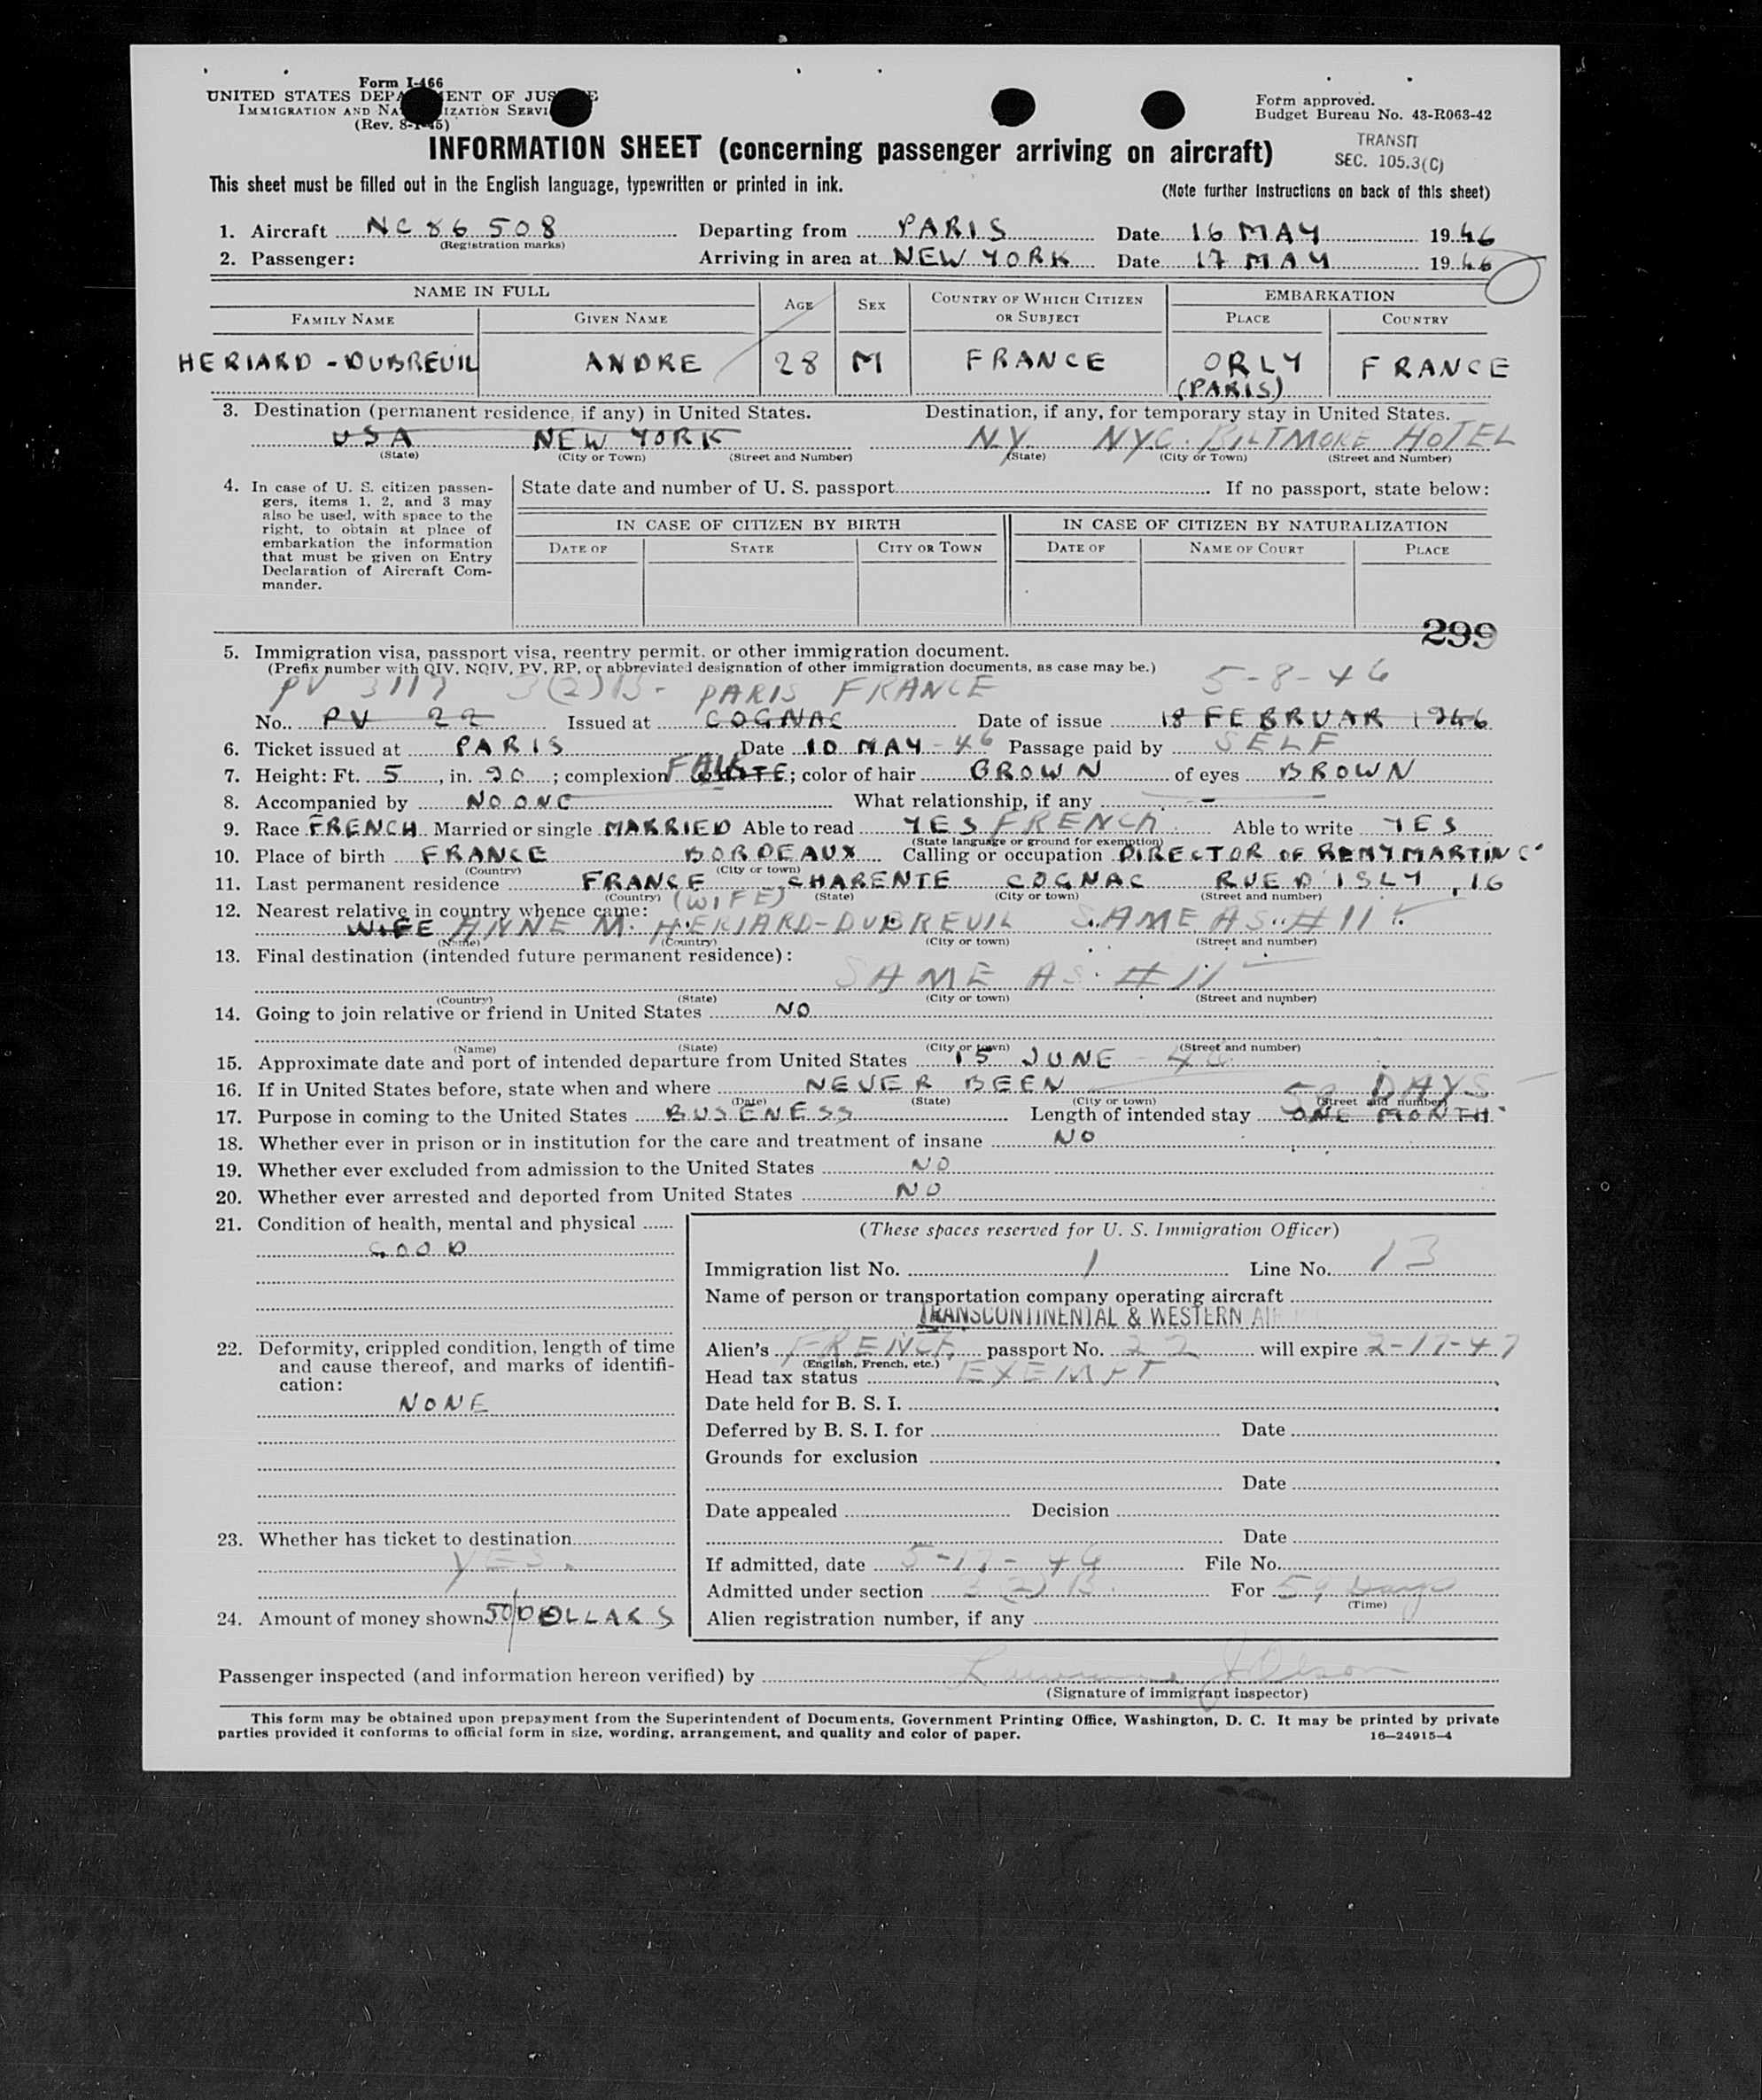 Form I-466
UNITED STATES DEPARTMENT OF JUSTICE
IMMIGRATION AND NATURALIZATION SERVICE
(Rev. 8-1-45)
Form approved.
Budget Bureau No. 43-R063-42
INFORMATION SHEET (concerning passenger arriving on aircraft)
TRANSIT
SEC. 105.3(C)
This sheet must be filled out in the English language, typewritten or printed in ink.
(Note further instructions on back of this sheet)
1. Aircraft NC 86 508 Departing from PARIS Date 16 MAY 1946
(Registration marks)
2. Passenger: Arriving in area at NEW YORK Date 17 MAY 1946
NAME IN FULL AGE SEX COUNTRY OF WHICH CITIZEN OR SUBJECT EMBARKATION
FAMILY NAME GIVEN NAME PLACE COUNTRY
HERIARD-DUBREUIL ANDRE 28 M FRANCE ORLY (PARIS) FRANCE
3. Destination (permanent residence if any) in United States. Destination, if any, for temporary stay in United States.
USA NEW YORK N.Y. NYC. BILTMORE HOTEL
(State) (City or Town) (Street and Number) (State) (City or Town) (Street and Number)
4. In case of U. S. citizen passengers, items 1, 2, and 3 may also be used, with space to the right, to obtain at place of embarkation the information that must be given on Entry Declaration of Aircraft Commander.
State date and number of U. S. passport If no passport, state below:
IN CASE OF CITIZEN BY BIRTH IN CASE OF CITIZEN BY NATURALIZATION
DATE OF STATE CITY OR TOWN DATE OF NAME OF COURT PLACE
299
5. Immigration visa, passport visa, reentry permit, or other immigration document.
(Prefix number with QIV, NQIV, PV, RP, or abbreviated designation of other immigration documents, as case may be.)
PV 3117 3(2)B- PARIS FRANCE 5-8-46
No. PV 22 Issued at COGNAC Date of issue 18 FEBRUAR 1946
6. Ticket issued at PARIS Date 10 MAY-46 Passage paid by SELF
7. Height: Ft. 5, in. 90; complexion FAIR WHITE; color of hair BROWN of eyes BROWN
8. Accompanied by NO ONE What relationship, if any -
9. Race FRENCH Married or single MARRIED Able to read YES FRENCH Able to write YES
(State language or ground for exemption)
10. Place of birth FRANCE BORDEAUX Calling or occupation DIRECTOR OF REMY MARTIN C°
(Country) (City or town)
11. Last permanent residence FRANCE CHARENTE COGNAC RUE D'ISLY, 16
(Country) (State) (City or town) (Street and number)
12. Nearest relative in country whence came: (WIFE)
WIFE ANNE M. HERIARD-DUBREUIL SAME AS #11
(Name) (Country) (City or town) (Street and number)
13. Final destination (intended future permanent residence):
SAME AS #11
(Country) (State) (City or town) (Street and number)
14. Going to join relative or friend in United States NO
(Name) (State) (City or town) (Street and number)
15. Approximate date and port of intended departure from United States 15 JUNE - 46
16. If in United States before, state when and where NEVER BEEN
(Date) (State) (City or town) (Street and number)
59 DAYS
17. Purpose in coming to the United States BUSENESS Length of intended stay ONE MONTH
18. Whether ever in prison or in institution for the care and treatment of insane NO
19. Whether ever excluded from admission to the United States NO
20. Whether ever arrested and deported from United States NO
21. Condition of health, mental and physical
GOOD
22. Deformity, crippled condition, length of time and cause thereof, and marks of identification:
NONE
23. Whether has ticket to destination
YES.
24. Amount of money shown 50/ DOLLARS
(These spaces reserved for U. S. Immigration Officer)
Immigration list No. 1 Line No. 13
Name of person or transportation company operating aircraft
TRANSCONTINENTAL & WESTERN AIR
Alien's FRENCH passport No. 22 will expire 2-17-47
(English, French, etc.)
Head tax status EXEMPT
Date held for B. S. I.
Deferred by B. S. I. for Date
Grounds for exclusion
Date
Date appealed Decision
Date
If admitted, date 5-17-46 File No.
Admitted under section 3(2)B. For 59 Days
(Time)
Alien registration number, if any
Passenger inspected (and information hereon verified) by
(Signature of immigrant inspector)
This form may be obtained upon prepayment from the Superintendent of Documents, Government Printing Office, Washington, D. C. It may be printed by private
parties provided it conforms to official form in size, wording, arrangement, and quality and color of paper.
16—24915-4